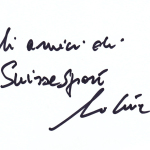 li amici di
SuisseSport